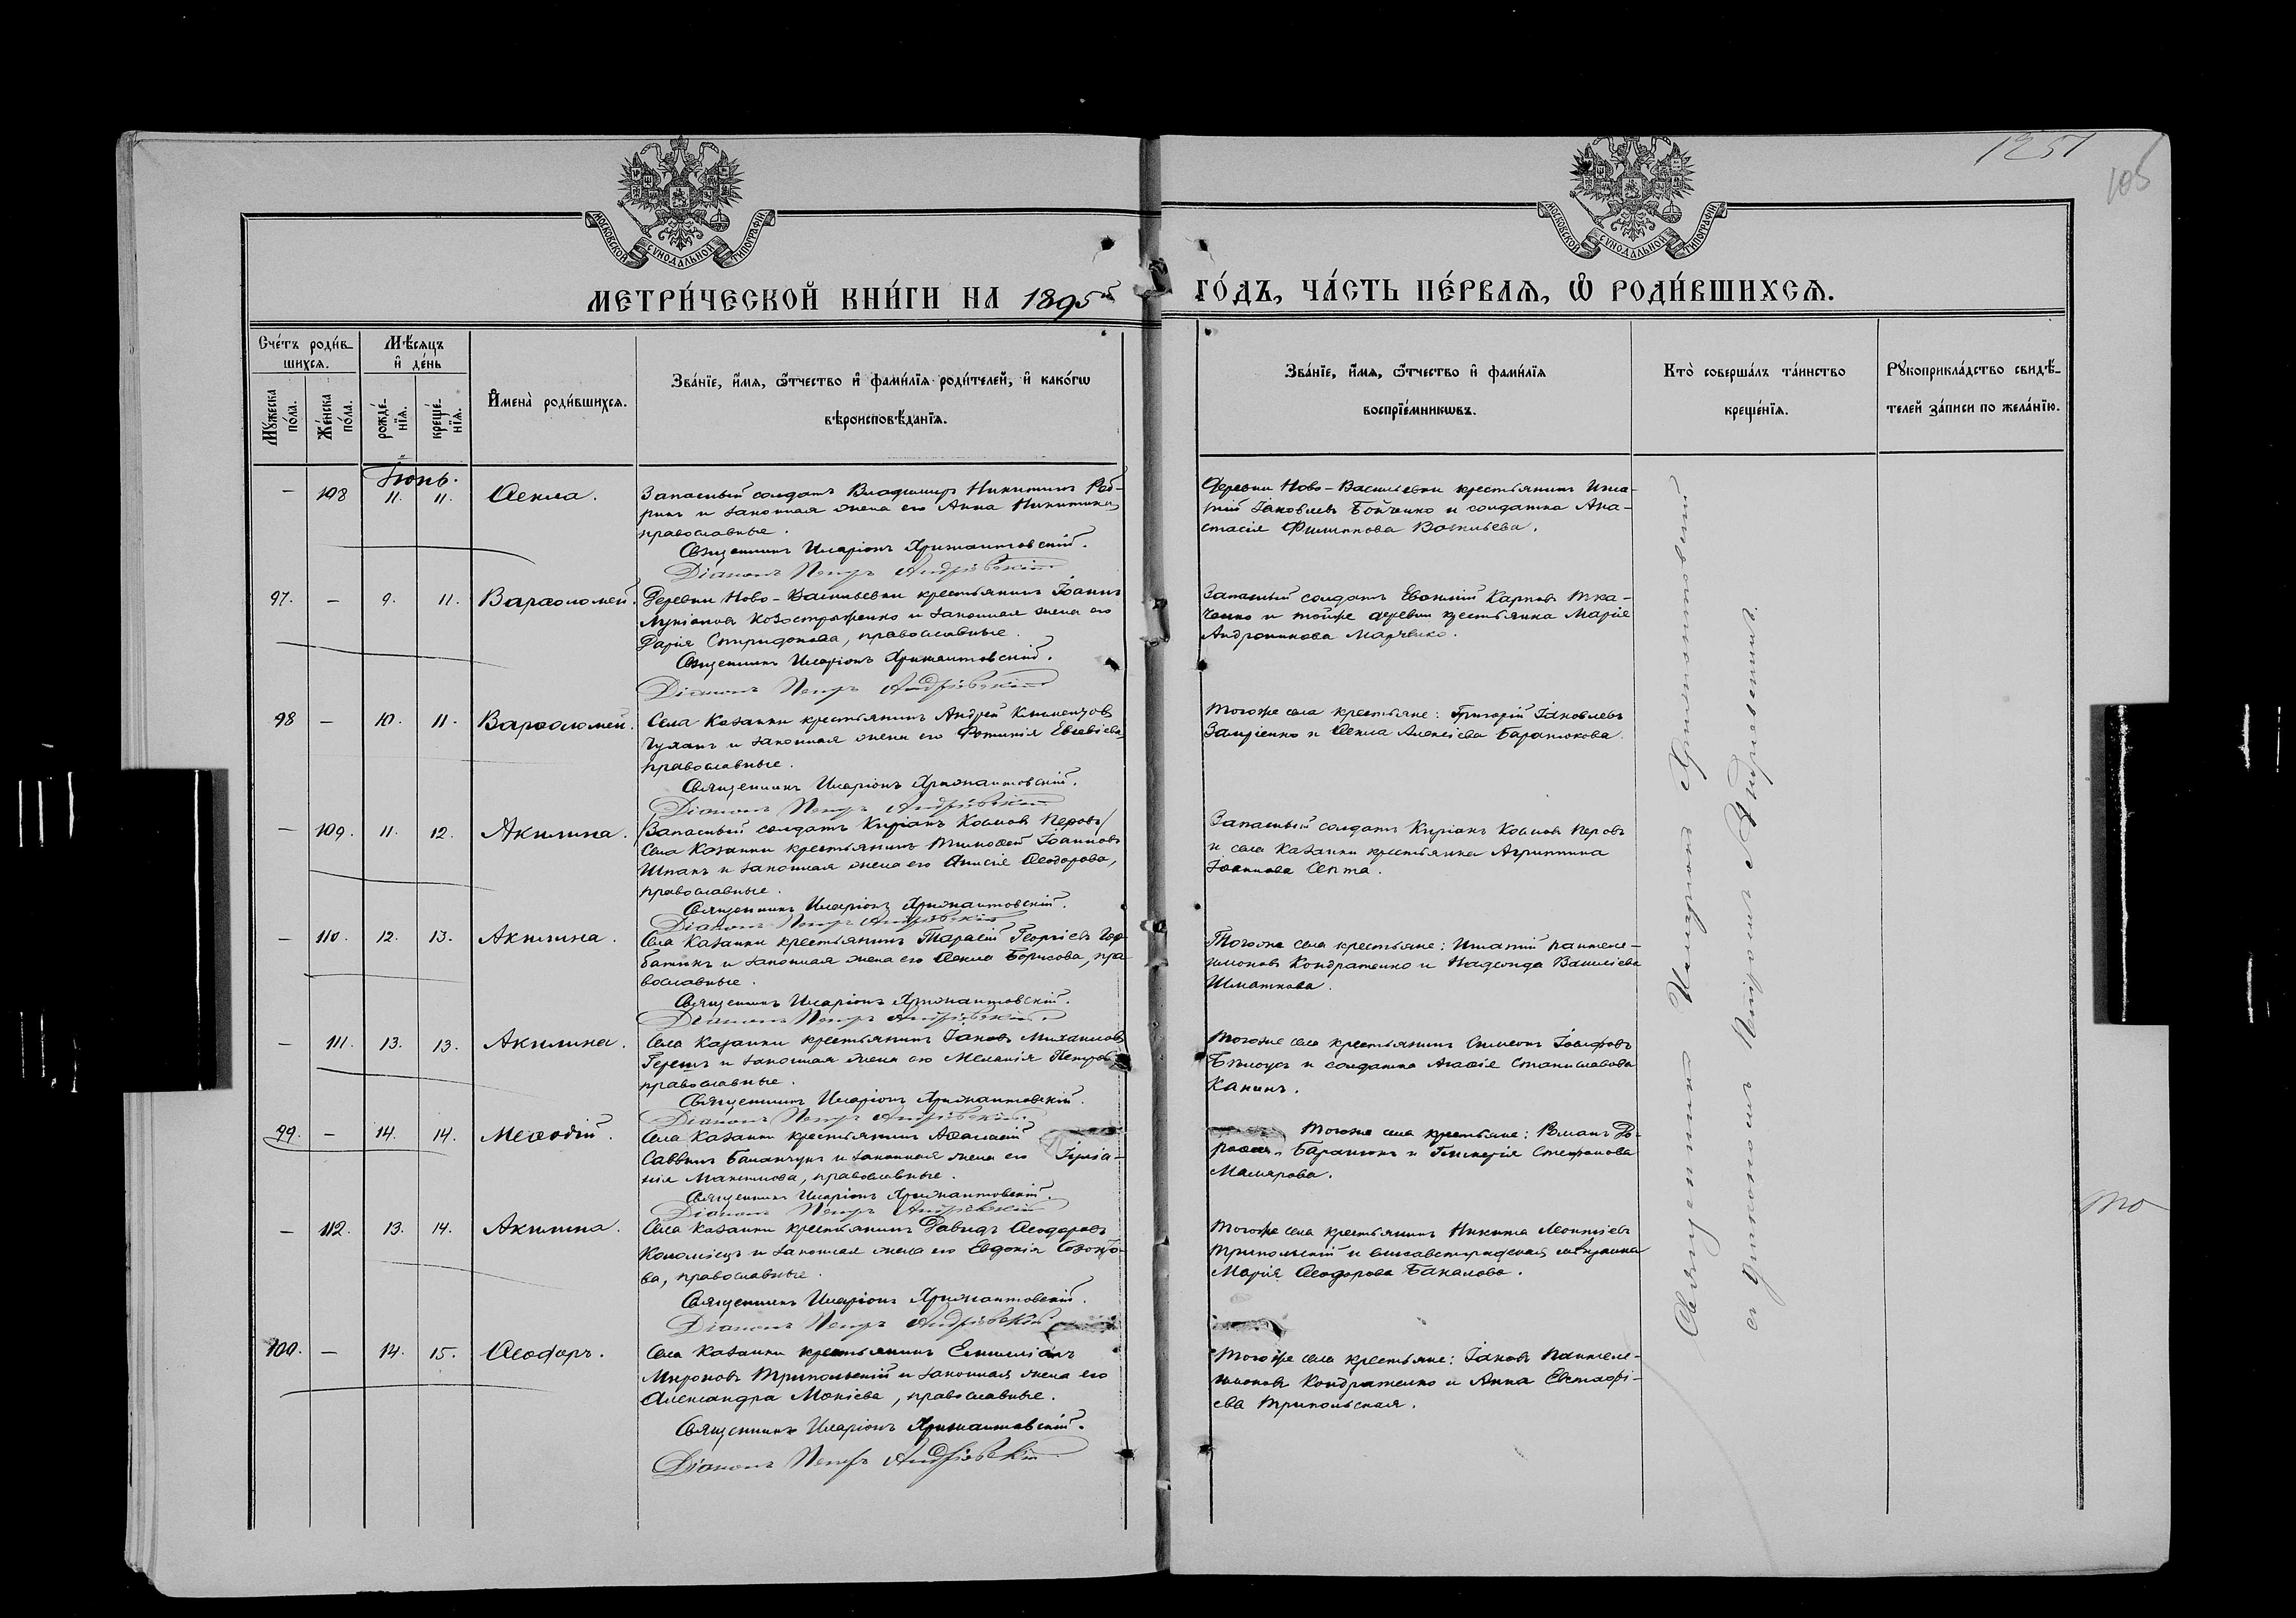 1251
105
МОСКОВСКОЙ СѴНОДАЛЬНОЙ ТИПОГРАФІИ
МОСКОВСКОЙ СѴНОДАЛЬНОЙ ТИПОГРАФІИ
МЕТРИ́ЧЕСКОЙ КНИ́ГИ НА 1895й ГО́ДЪ, ЧА́СТЬ ПЕ́РВАЯ, Ѡ РОДИ́ВШИХСЯ.
Сче́тъ роди́в-
шихся.
Мѣ́сяцъ
и҆ де́нь
Мꙋ́жеска по́ла.
Же́нска по́ла.
рожде́-
нїя.
креще́-
нїя.
И҆мена̀ роди́вшихся.
Зва́нїе, и҆́мя, ѻ҆́тчество и҆ фами́лїя роди́телей, и҆ како́гѡ
вѣроисповѣ́данїя.
Зва́нїе, и҆́мя, ѻ҆́тчество и҆ фами́лїя
воспрїе́мникѡвъ.
Кто̀ соверша́лъ та́инство
креще́нїя.
Рꙋкоприкла́дство свидѣ́-
телей за́писи по жела́нїю.
Іюнь.
— 108 11. 11. Ѳекла.
Запасный солдатъ Владимиръ Никитинъ
и законная жена его Анна Никитина,
православные.
Священникъ Иларіонъ Хрижантовскій.
Діаконъ Петръ Андріевскій
Деревни Ново-Васильевки крестьянинъ Игна-
тій Іаковлевъ Бойченко и солдатка Ана-
стасія Филиппова Васильева.
97. — 9. 11. Варѳоломей.
Деревни Ново-Васильевки крестьянинъ Іоаннъ
Лукіановъ и законная жена его
Дарія Спиридонова, православные.
Священникъ Иларіонъ Хрижантовскій.
Діаконъ Петръ Андріевскій
Запасный солдатъ Евѳимій Карповъ Тка-
ченко и тойже деревни крестьянка Марія
Андроникова Марченко.
98 — 10. 11. Варѳоломей.
Села Казанки крестьянинъ Андрей Климентовъ
и законная жена его Фотинія Евсевіева,
православные.
Священникъ Иларіонъ Хрижантовскій.
Діаконъ Петръ Андріевскій
Тогоже села крестьяне: Григорій Іаковлевъ
и Ѳекла Алексіева Баранюкова.
— 109. 11. 12. Акилина.
/Запасный солдатъ Киріакъ Космовъ Перовъ/
Села Казанки крестьянинъ Тимоѳей Іоанновъ
Шпакъ и законная жена его Анисія Ѳеодорова,
православные.
Священникъ Иларіонъ Хрижантовскій.
Діаконъ Петръ Андріевскій
Запасный солдатъ Киріакъ Космовъ Перовъ
и села Казанки крестьянка Агриппина
Іоаннова Септа.
— 110. 12. 13. Акилина.
Села Казанки крестьянинъ Тарасій Георгіевъ Гор-
батюкъ и законная жена его Ѳекла Борисова, пра-
вославные.
Священникъ Иларіонъ Хрижантовскій.
Діаконъ Петръ Андріевскій.
Тогоже села крестьяне: Игнатій Пантеле-
имоновъ Кондратенко и Надежда Василіева
Шматкова.
— 111. 13. 13. Акилина.
Села Казанки крестьянинъ Іаковъ Михаиловъ
и законная жена его Меланія Петрова
православные.
Священникъ Иларіонъ Хрижантовскій.
Діаконъ Петръ Андріевскій.
Тогоже села крестьянинъ Симеонъ Іосифовъ
Бѣлоусъ и солдатка Агаѳія Станиславова
Канинъ.
99. — 14. 14. Меѳодій.
Села Казанки крестьянинъ Аѳанасій
Саввинъ Баланчукъ и законная жена его Іуліа-
нія Максимова, православные.
Священникъ Иларіонъ Хрижантовскій.
Діаконъ Петръ Андріевскій
Тогоже села крестьяне: Романъ До-
роѳеевъ Баранюкъ и Гликерія Стефанова
Малярова.
— 112. 13. 14. Акилина.
Села Казанки крестьянинъ Давидъ Ѳеодоровъ
Коломіецъ и законная жена его Евдокія Созонто-
ва, православные.
Священникъ Иларіонъ Хрижантовскій.
Діаконъ Петръ Андріевскій
Тогоже села крестьянинъ Никита Леонтіевъ
Трипольскій и елисаветградская мѣщанка
Марія Ѳеодорова Бакалова.
100. — 14. 15. Ѳеодоръ.
Села Казанки крестьянинъ Емиліанъ
Мироновъ Трипольскій и законная жена его
Александра Мокіева, православные.
Священникъ Иларіонъ Хрижантовскій.
Діаконъ Петръ Андріевскій
Тогоже села крестьяне: Іаковъ Пантеле-
имоновъ Кондратенко и Анна Евстафі-
ева Трипольская.
Священникъ Иларіонъ Хрижантовскій
съ діакономъ Петромъ Андріевскимъ.